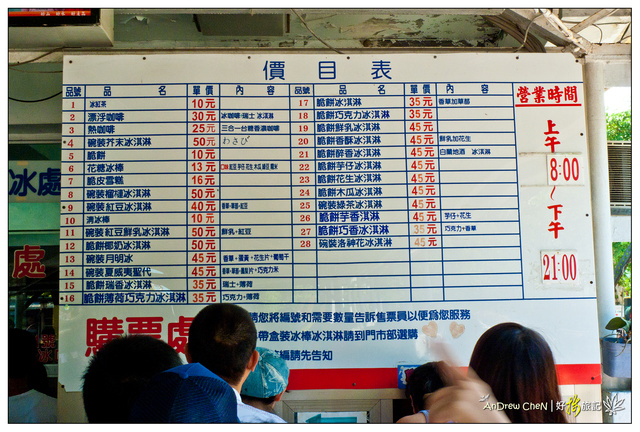 價目表
品號 品名 單價 內容 品號 品名 單價 內容
1 冰紅茶 10元
2 漂浮咖啡 30元 冰咖啡·瑞士冰淇淋
3 熱咖啡 25元 三合一台糖香濃咖啡
*4 碗裝芥末冰淇淋 50元 わさび
5 脆餅 10元
6 花糖冰棒 13元
7 脆皮雪糕 16元
8 碗裝榴槤冰淇淋 50元
*9 碗裝紅豆冰淇淋 40元
10 清冰棒 10元
11 碗裝紅豆鮮乳冰淇淋 50元 鮮乳+紅豆
12 脆餅椰奶冰淇淋 50元
13 碗裝月明冰 45元 香草+蛋黃+花生片+葡萄干
14 碗裝夏威夷聖代 45元
15 脆餅瑞薄冰淇淋 35元 瑞士+薄荷
*16 脆餅薄荷巧克力冰淇淋 35元 巧克力+薄荷
17 脆餅冰淇淋 35元 香草加草莓
18 脆餅巧克力冰淇淋 35元
19 脆餅鮮乳冰淇淋 45元
20 脆餅香酥冰淇淋 45元 鮮乳加花生
21 脆餅醉香冰淇淋 45元 白蘭地酒 冰淇淋
22 脆餅芋仔冰淇淋 45元
23 脆餅花生冰淇淋 45元
24 脆餅木瓜冰淇淋 45元
25 碗裝綠茶冰淇淋 45元
26 脆餅芋香淇淋 45元 芋仔+花生
27 脆餅巧香冰淇淋 35元 巧克力+香草
28 碗裝洛神花冰淇淋 45元
營業時間
上午
8:00
~
下午
21:00
購票處
請您將編號和需要數量告訴售票員以便為您服務
帶盒裝冰棒冰淇淋請到門市部選購
編請先告知
冰處
處
AnDrew CheN | 好攝旅誌
AnDrew CheN